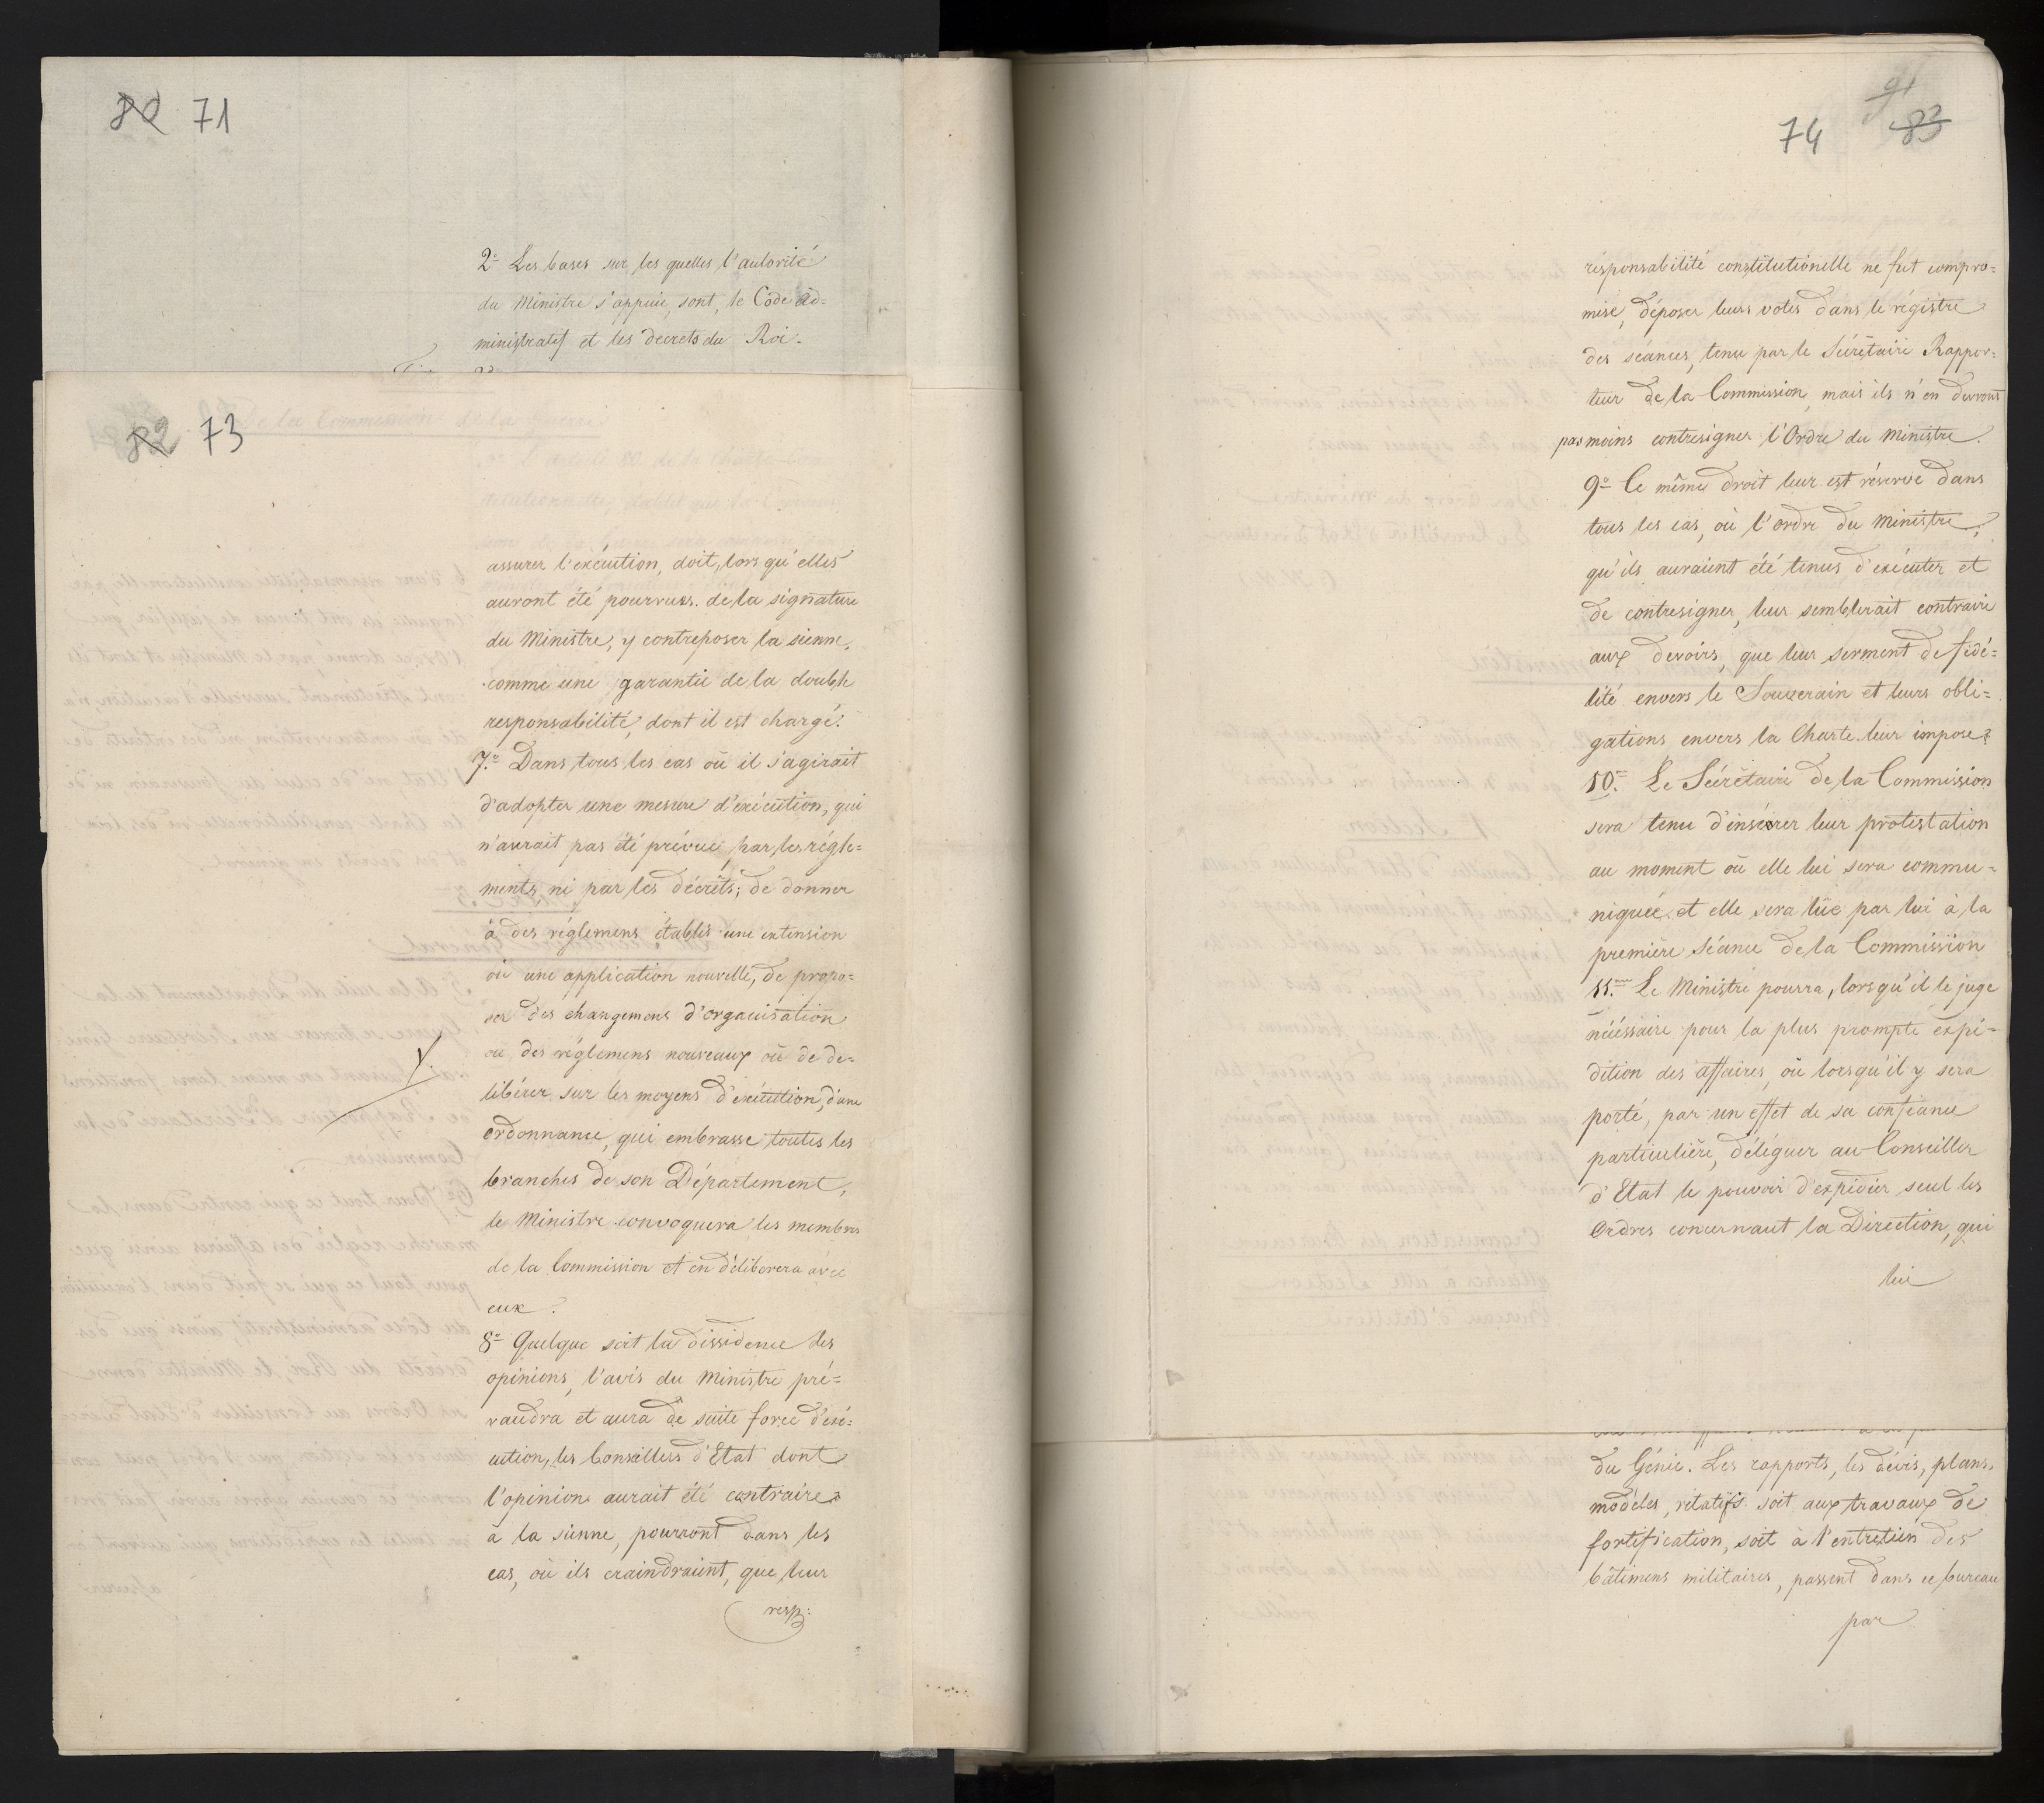 80 71
2° Les bases sur les quelles l'autorité
du Ministre s'appuie, sont, le Code ad=
ministratif et les decrets du Roi.
82 73
assurer l'exécution, doit, lors qu'elles
auront été pourvues de la signature
du Ministre, y contreposer la sienne,
comme une garantie de la double
responsabilité, dont il est chargé.
7.° Dans tous les cas où il s'agirait
d'adopter une mesure d'exécution, qui
n'aurait pas été prévue par les régle=
ments, ni par les décrèts; de donner
à des réglemens établis une extension
où une application nouvelle, de propo=
ser des changemens d'organisation
ou des réglemens nouveaux où de de=
libérer sur les moyens d'exécution, d'une
ordonnance, qui embrasse toutes les
branches de son Département,
le Ministre convoquera les membres
de la Commission et en déliberera avec
eux.
8° Quelque soit la dissidence des
opinions, l'avis du Ministre pré=
vaudra et aura de suite force d'exé=
cution, les Conseillers d'Etat dont
l'opinion aurait été contraire
à la sienne, pourront dans les
cas, où ils craindraient, que leur
resp:
91
74 83
responsabilité constitutionelle ne fut compro=
mise, déposer leurs votes dans le régistre
des séances, tenu par le Sécrétaire Rappor=
teur de la Commission, mais ils n'en devront
pas moins contresigner l'Ordre du Ministre.
9° Ce même droit leur est réservé dans
tous les cas, où l'ordre du Ministre,
qu'ils auraient été tenus d'exécuter et
de contresigner, leur semblerait contraire
aux devoirs, que leur serment de fidé=
lité envers le Souverain et leurs obli=
gations envers la Charte leur impose.
10. Le Sécrétaire de la Commission
sera tenu d'insérer leur protestation
au moment où elle lui sera commu=
niquée et elle sera lüe par lui à la
première Séance de la Commission
11. Le Ministre pourra, lorsqu'il le juge
nécéssaire pour la plus prompte expé=
dition des affaires, où lorsqu'il y sera
porté, par un effet de sa confiance
particulière, déléguer au Conseiller
d'Etat le pouvoir d'expédier seul les
Ordres concernant la Direction, qui
lui
du Génie. Les rapports, les dévis, plans,
modèles, rélatifs soit aux travaux de
fortification, soit à l'entretien des
bâtimens militaires, passent dans ce bureau
par